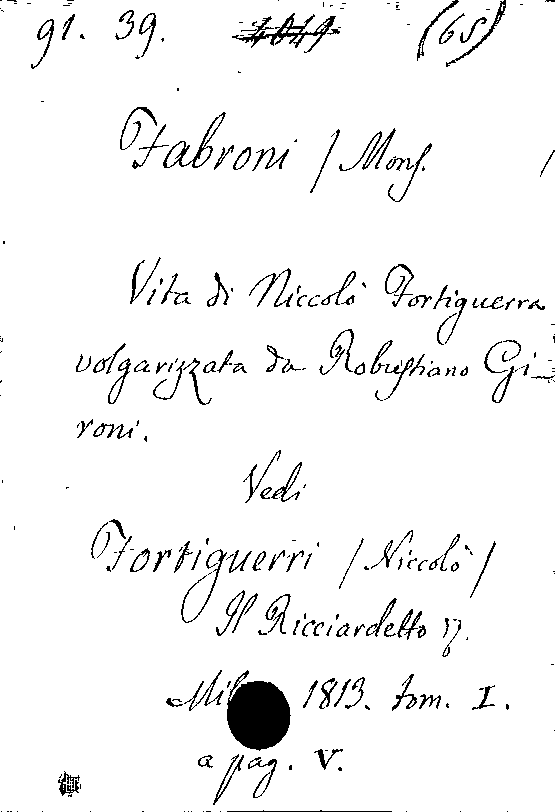 91. 39. 4049 (65)
Fabroni / Mons. /
Vita di Niccolò Fortiguerra
volgarizzata da Robustiano Gi-
roni.
Vedi
Fortiguerri / Niccolò /
Il Ricciardetto
Mil 1813. tom. I.
a pag. V.